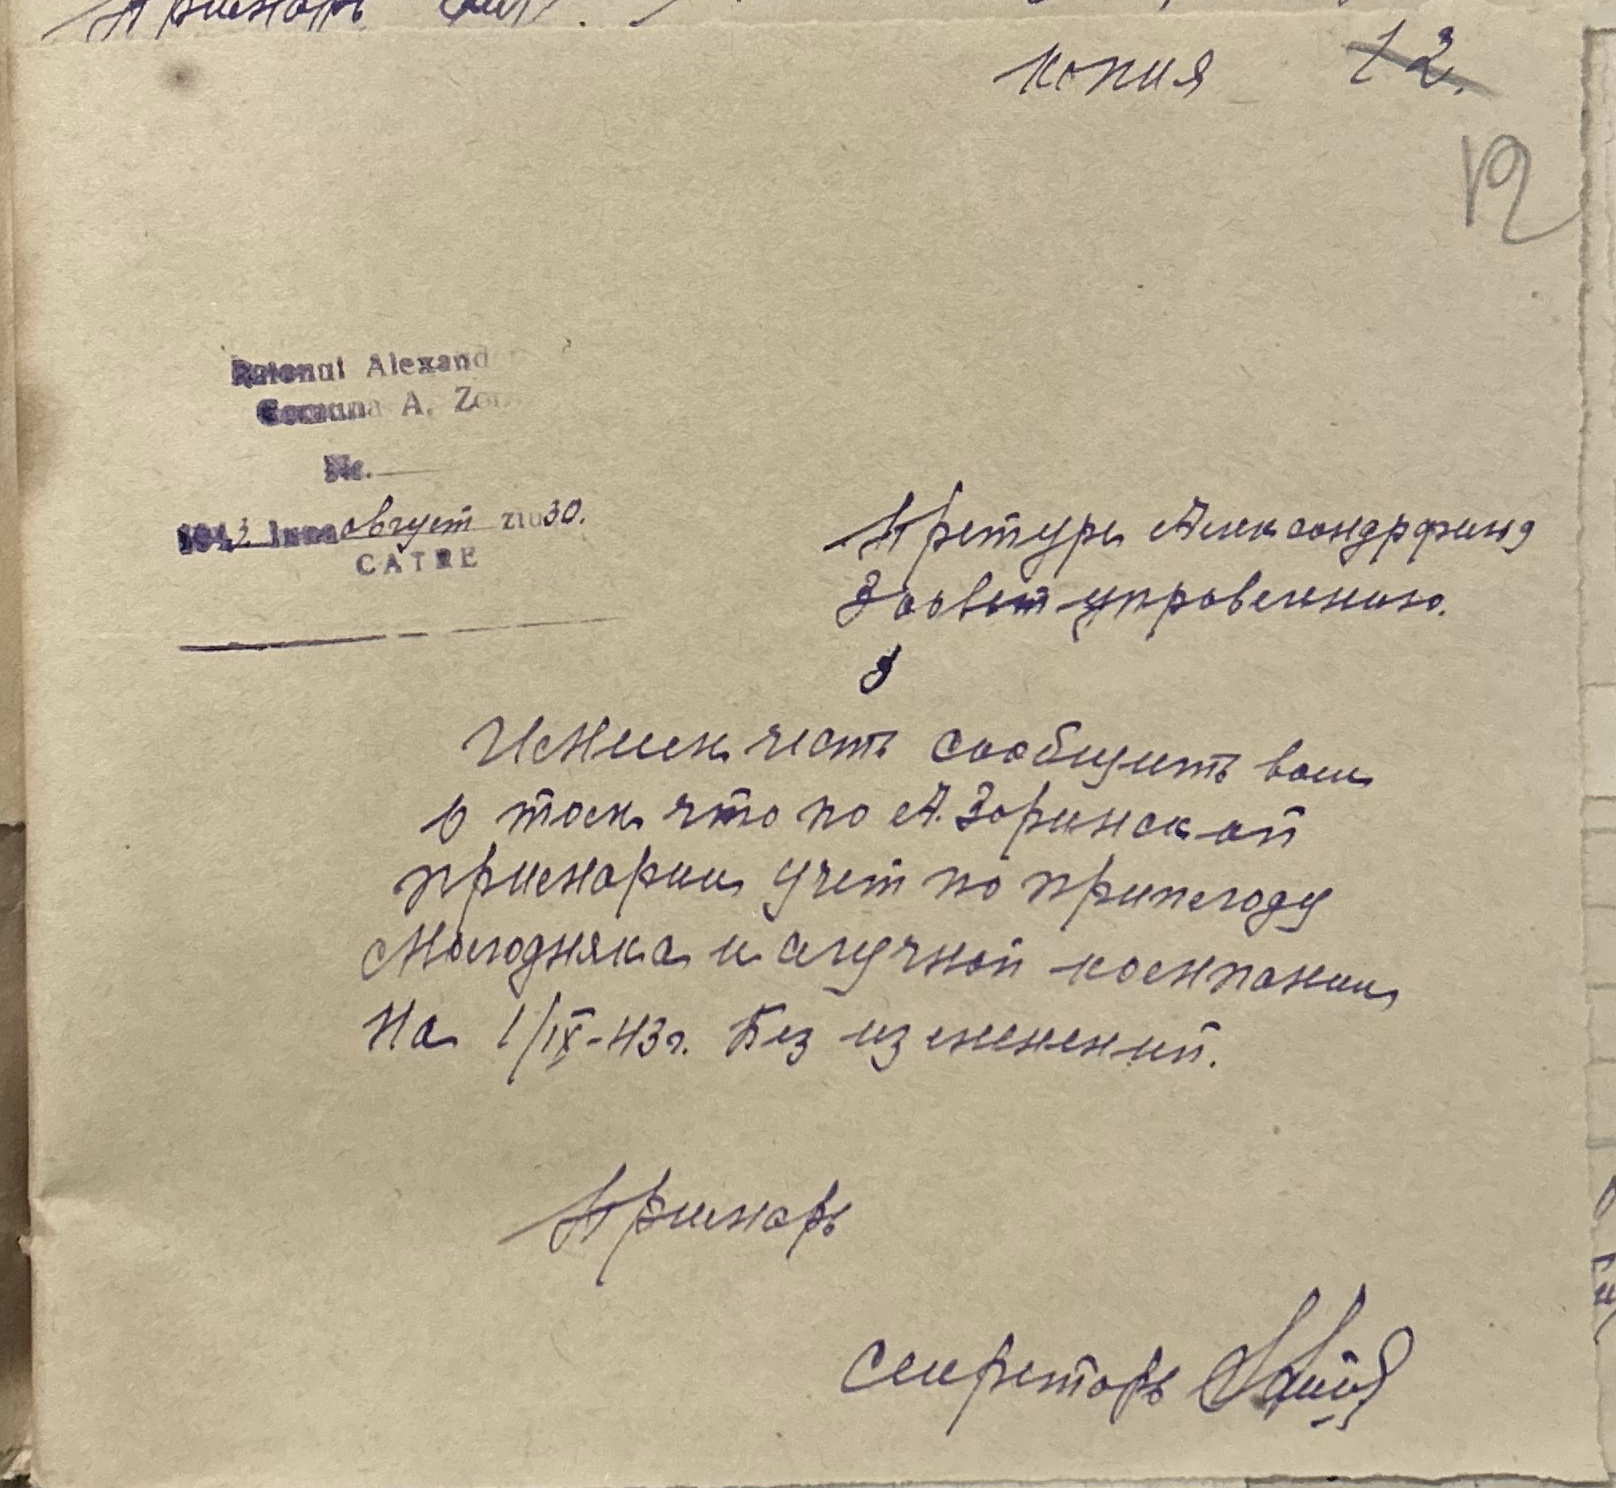 Примарь
копия 12.
12
Raionul Alexand
Comuna A. Zor
Nr.
1943. Luna август ziua 30.
CATRE
Претуре Александрфилд
Зоовет управлению.
Имеем честь сообщить вам
о том что по А. Зоринской
примарии учет по приплоду
Молодняка и случной компании
На 1/IX-43 г. Без изменений.
Примарь
Секретарь